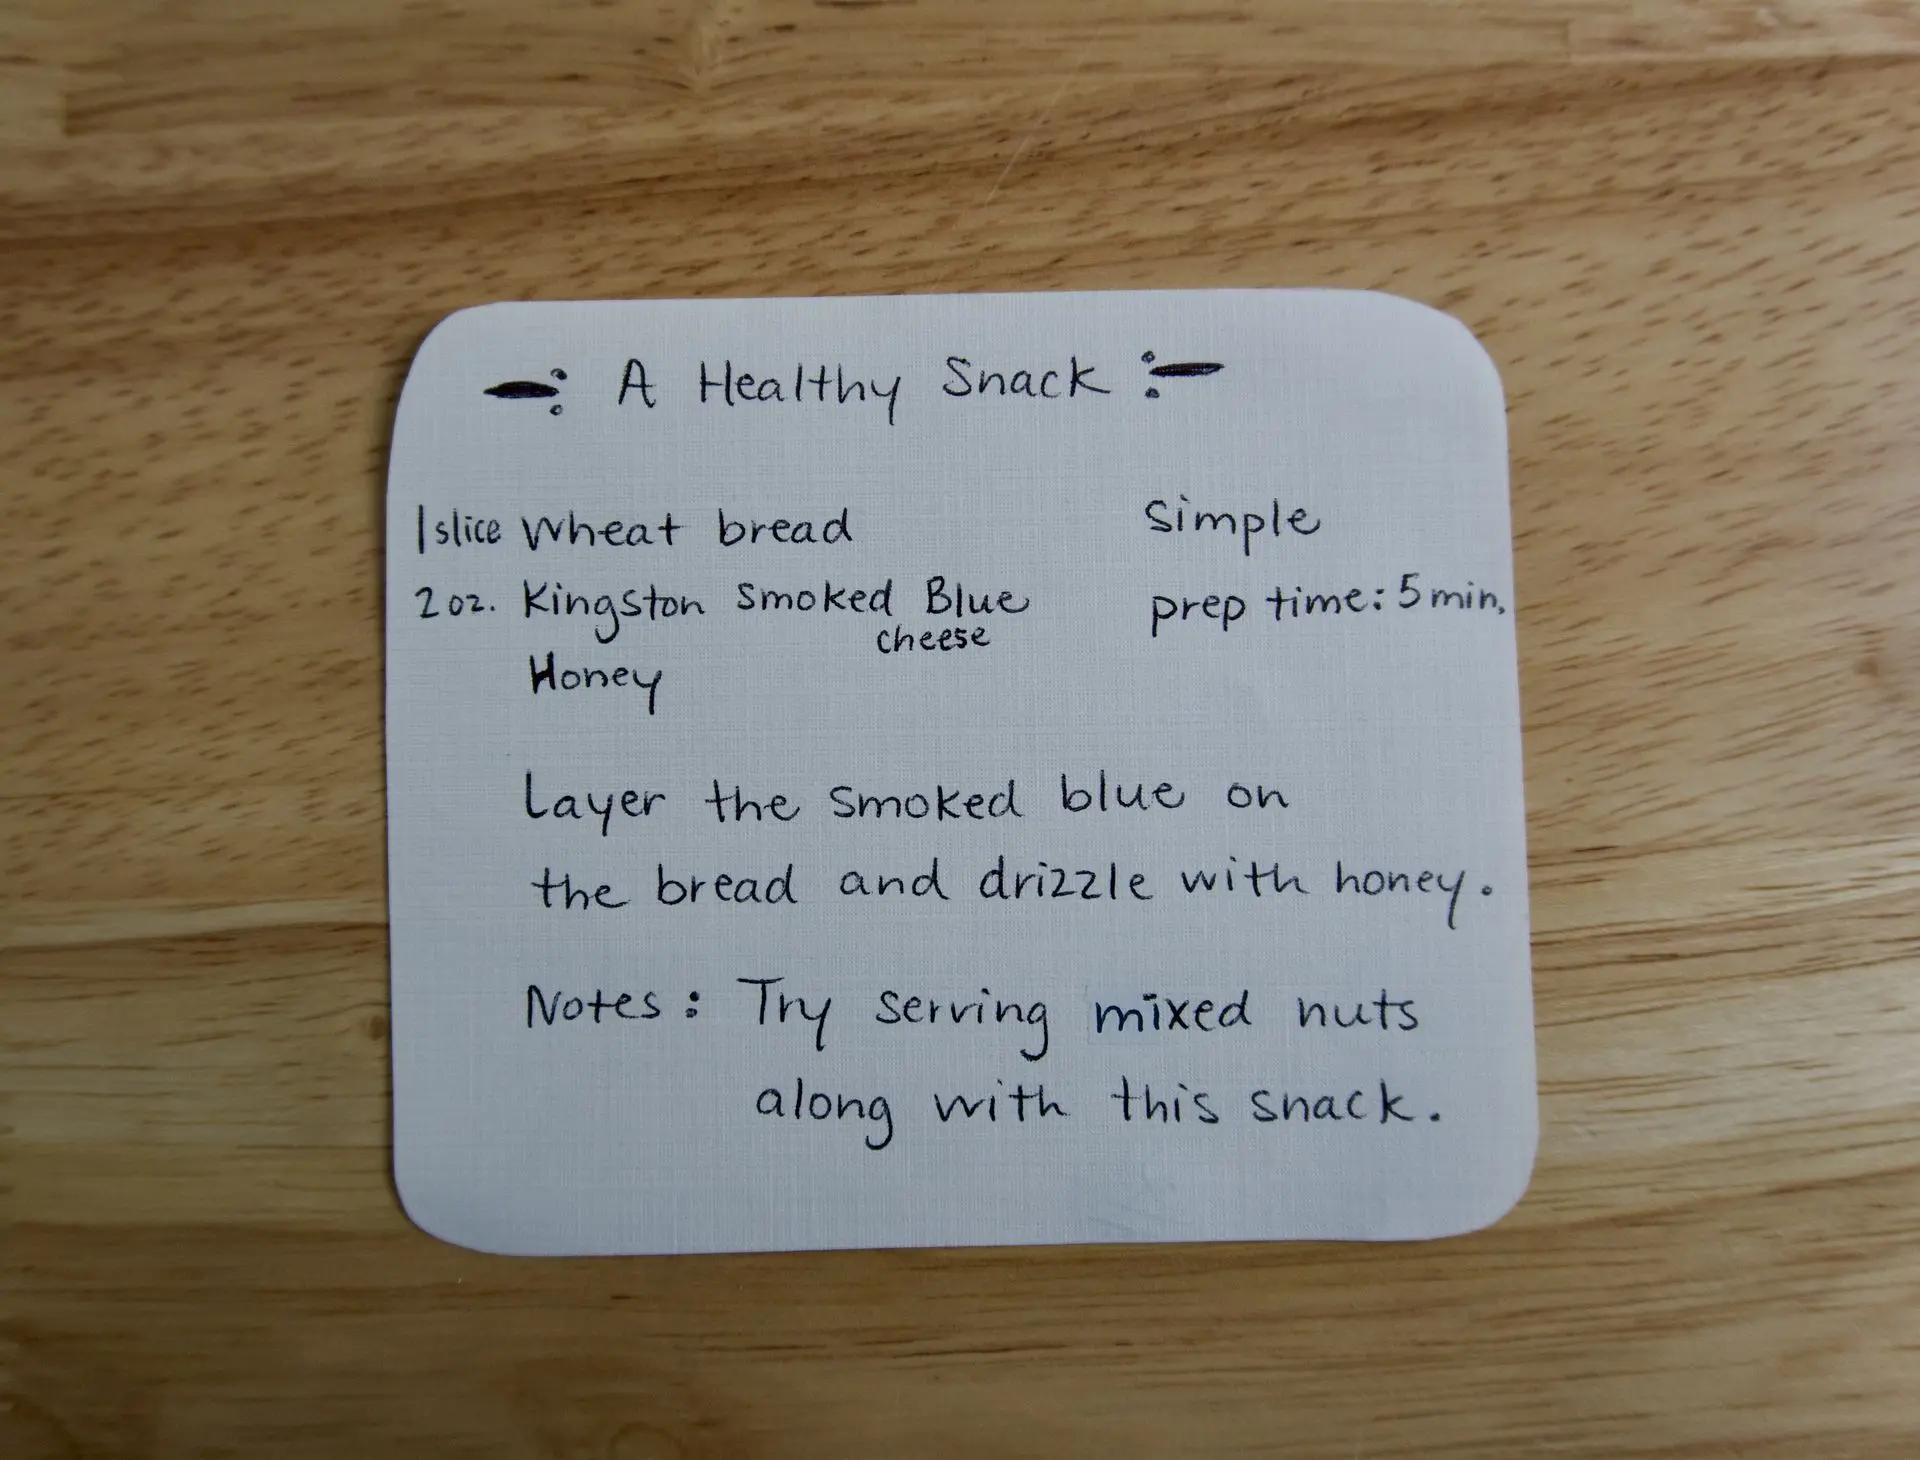 A Healthy Snack
1 slice Wheat bread
2 oz. Kingston Smoked Blue
cheese
Honey
Simple
prep time: 5 min.
Layer the smoked blue on
the bread and drizzle with honey.
Notes: Try serving mixed nuts
along with this snack.